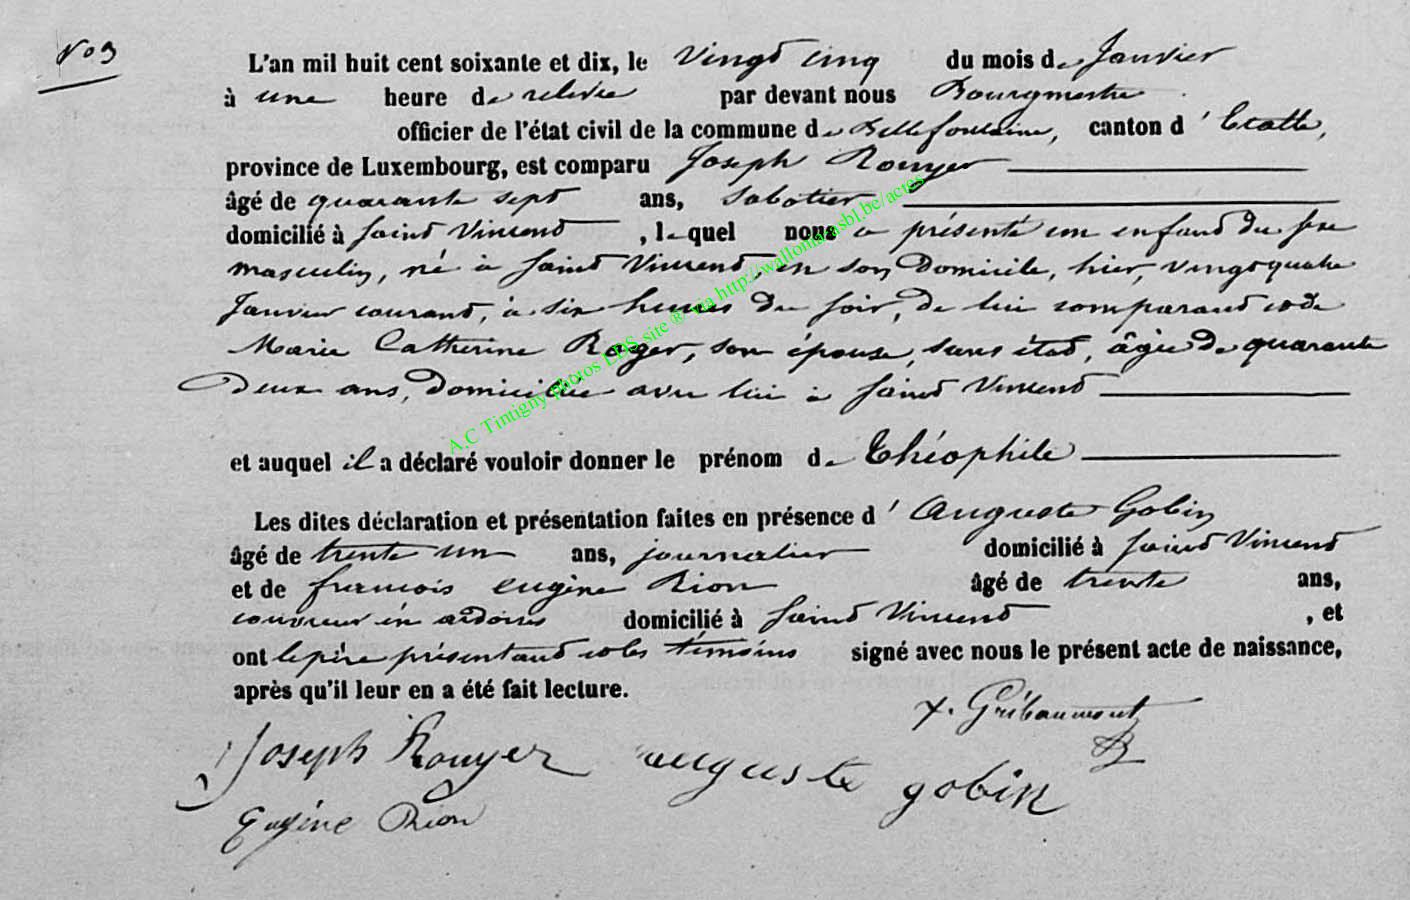 N° 3
L'an mil huit cent soixante et dix, le vingt cinq du mois de Janvier
à une heure de relevée par devant nous Bourgmestre
officier de l'état civil de la commune de Bellefontaine, canton d'Etalle,
province de Luxembourg, est comparu Joseph Rouyer
âgé de quarante sept ans, sabotier
domicilié à Saint Vincent, lequel nous a présenté un enfant du sexe
masculin, né à Saint Vincent, en son domicile, hier, vingt quatre
Janvier courant, à six heures du soir, de lui comparant et de
Marie Catherine Roger, son épouse, sans état, âgée de quarante
deux ans, domiciliée avec lui à Saint Vincent
et auquel il a déclaré vouloir donner le prénom de Théophile
Les dites déclaration et présentation faites en présence d'Auguste Gobin
âgé de trente un ans, journalier domicilié à Saint Vincent
et de françois eugène Rion âgé de trente ans,
couvreur en ardoises domicilié à Saint Vincent, et
ont le père présentant et les témoins signé avec nous le présent acte de naissance,
après qu'il leur en a été fait lecture.
Gribaumont
Joseph Rouyer auguste gobin
Eugéne Rion
A.C Tintigny photos LDS site ® via http://wallonia-asbl.be/actes